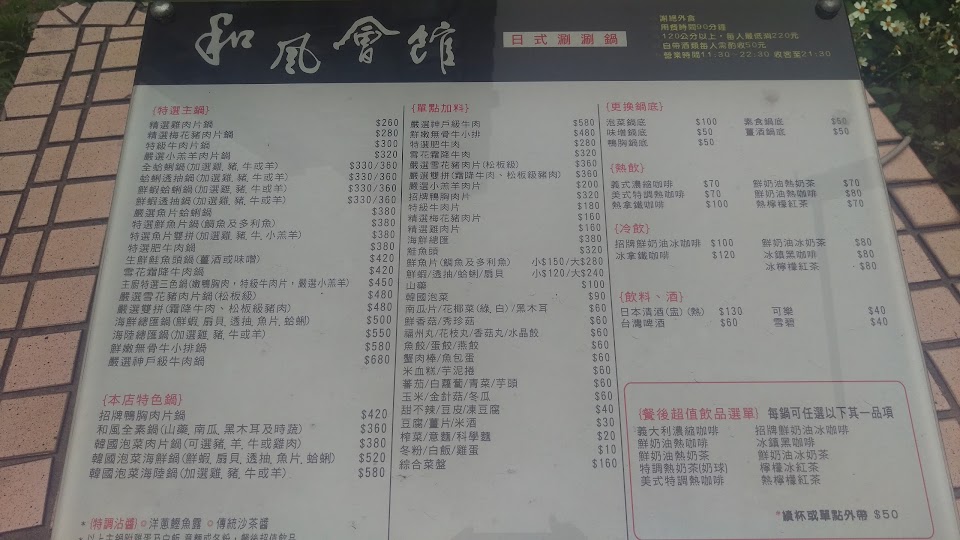 和風會館
日式涮涮鍋
謝絕外食
用餐時間90分鐘
120公分以上，每人最低消220元
自帶酒類每人需酌收50元
營業時間11:30 - 22:30 收客至21:30
{特選主鍋}
精選雞肉片鍋 $260
精選梅花豬肉片鍋 $280
特級牛肉片鍋 $300
嚴選小羔羊肉片鍋 $320
全蛤蜊鍋(加選雞, 豬, 牛或羊) $330/360
蛤蜊透抽鍋(加選雞, 豬, 牛或羊) $330/360
鮮蝦蛤蜊鍋(加選雞, 豬, 牛或羊) $330/360
鮮蝦透抽鍋(加選雞, 豬, 牛或羊) $330/360
嚴選魚片蛤蜊鍋 $380
特選鮮魚片鍋(鯛魚及多利魚) $380
特選魚片雙拼(加選雞, 豬, 牛, 小羔羊) $380
特選肥牛肉鍋 $380
生鮮鮭魚頭鍋(薑酒或味噌) $420
雪花霜降牛肉鍋 $420
主廚特選三色鍋(嫩鴨胸肉, 特級牛肉片, 嚴選小羔羊) $450
嚴選雪花豬肉片鍋(松板級) $480
嚴選雙拼(霜降牛肉、松板級豬肉) $480
海鮮總匯鍋(鮮蝦, 扇貝, 透抽, 魚片, 蛤蜊) $500
海陸總匯鍋(加選雞, 豬, 牛或羊) $550
鮮嫩無骨牛小排鍋 $580
嚴選神戶級牛肉鍋 $680
{本店特色鍋}
招牌鴨胸肉片鍋 $420
和風全素鍋(山藥, 南瓜, 黑木耳及時蔬) $360
韓國泡菜肉片鍋(可選豬, 羊, 牛或雞肉) $380
韓國泡菜海鮮鍋(鮮蝦, 扇貝, 透抽, 魚片, 蛤蜊) $520
韓國泡菜海陸鍋(加選雞, 豬, 牛或羊) $580
*{特調沾醬} 洋蔥鰹魚露 傳統沙茶醬
{單點加料}
嚴選神戶級牛肉 $580
鮮嫩無骨牛小排 $480
特選肥牛肉 $280
雪花霜降牛肉 $320
嚴選雪花豬肉片(松板級) $360
嚴選雙拼(霜降牛肉、松板級豬肉) $360
嚴選小羔羊肉片 $200
招牌鴨胸肉片 $320
特級牛肉片 $180
精選梅花豬肉片 $160
精選雞肉片 $160
海鮮總匯 $380
鮭魚頭 $320
鮮魚片(鯛魚及多利魚) 小$150/大$280
鮮蝦/透抽/蛤蜊/扇貝 小$120/大$240
山藥 $100
韓國泡菜 $90
南瓜片/花椰菜(綠, 白)/黑木耳 $60
鮮香菇/秀珍菇 $60
福州丸/花枝丸/香菇丸/水晶餃 $60
魚餃/蛋餃/燕餃 $60
蟹肉棒/魚包蛋 $60
米血糕/芋泥捲 $60
蕃茄/白蘿蔔/青菜/芋頭 $60
玉米/金針菇/冬瓜 $60
甜不辣/豆皮/凍豆腐 $40
豆腐/薑片/米酒 $30
榨菜/意麵/科學麵 $20
冬粉/白飯/雞蛋 $10
綜合菜盤 $160
{更換鍋底}
泡菜鍋底 $100 素食鍋底 $50
味增鍋底 $50 薑酒鍋底 $50
鴨胸鍋底
{熱飲}
義式濃縮咖啡 $70 鮮奶油熱奶茶 $70
美式特調熱咖啡 $70 鮮奶油熱咖啡 $80
熱拿鐵咖啡 $100 熱檸檬紅茶 $70
{冷飲}
招牌鮮奶油冰咖啡 $100 鮮奶油冰奶茶 $80
冰拿鐵咖啡 $120 冰鎮黑咖啡 $80
冰檸檬紅茶 $80
{飲料、酒}
日本清酒(溫)(熱) $130 可樂 $40
台灣啤酒 $60 雪碧 $40
{餐後超值飲品選單} 每鍋可任選以下其一品項
義大利濃縮咖啡 招牌鮮奶油冰咖啡
鮮奶油熱咖啡 冰鎮黑咖啡
鮮奶油熱奶茶 鮮奶油冰奶茶
特調熱奶茶(奶球) 檸檬冰紅茶
美式特調熱咖啡 熱檸檬紅茶
*續杯或單點外帶 $50